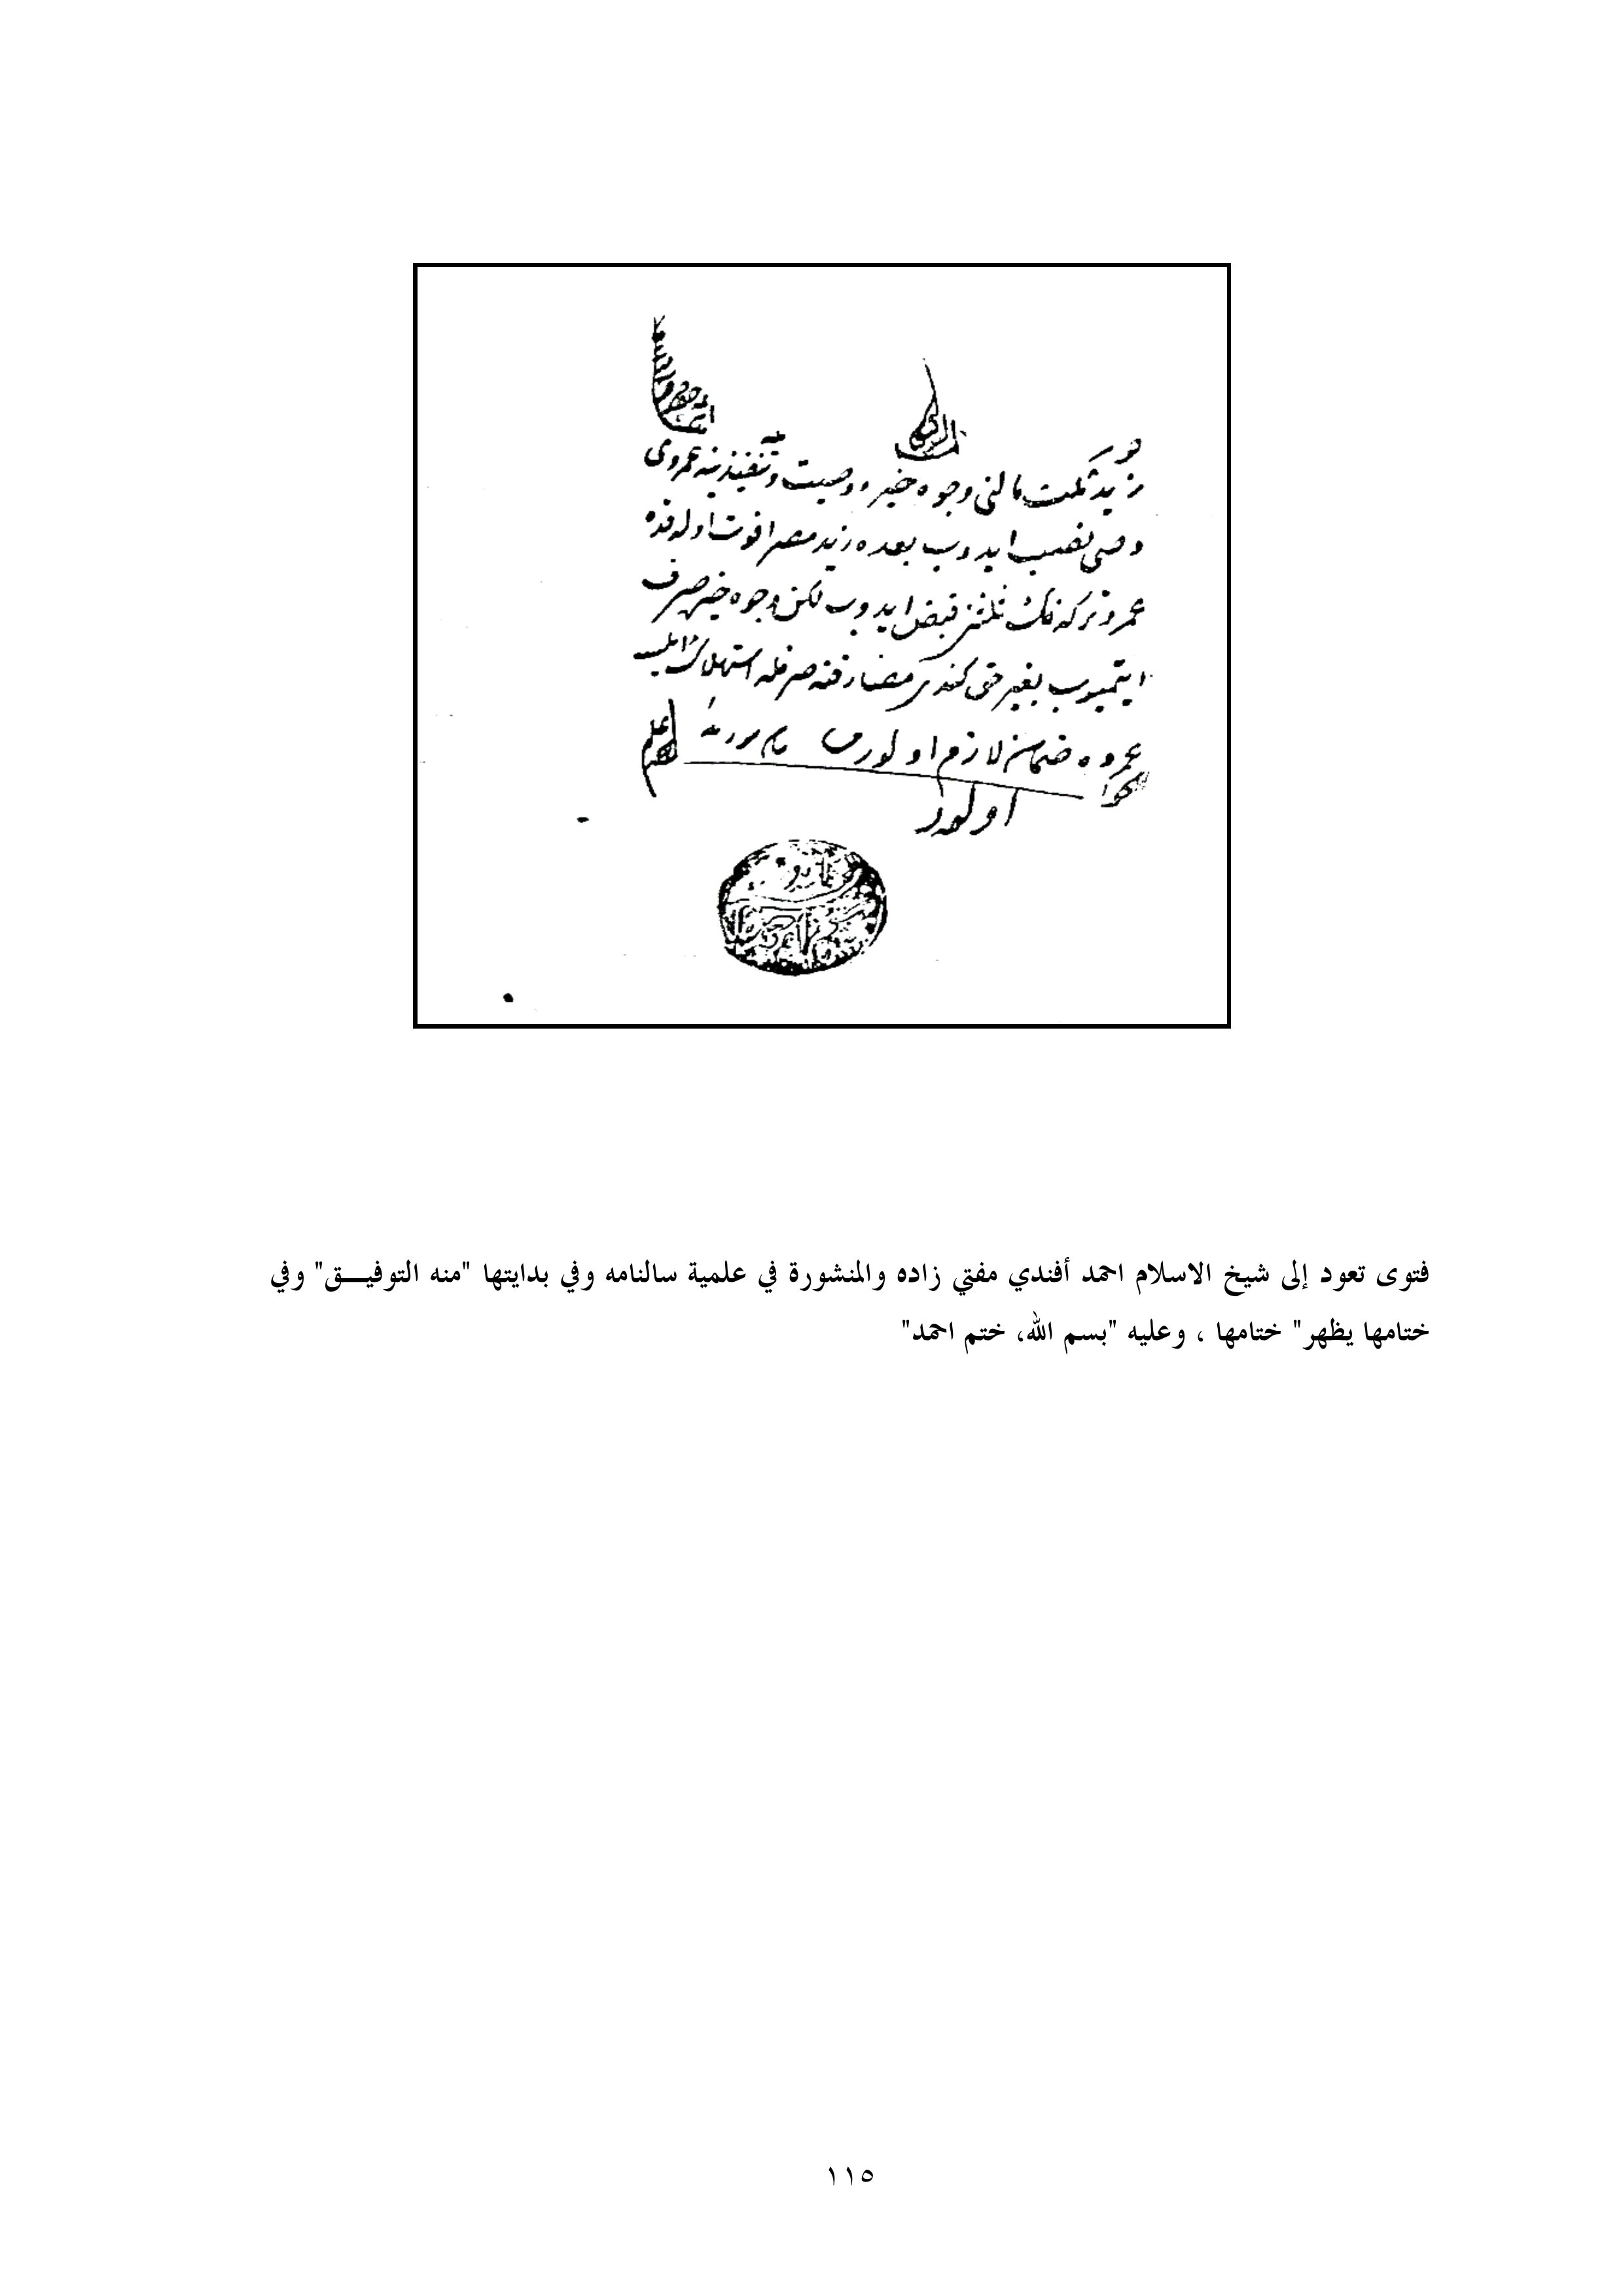 زيد ثلث مالنی وجوه خيره وصيت وتنفيذينه عمروی
وصی نصب ايدوب بعده زيد مصرا فوت اولدقده
عمرو تركه نك ثلثنی قبض ايدوب لكن وجوه خيره صرف
ايتميوب بغير حق كندی مصارفنه صرفله استهلاك ايلسه
عمروه ضمان لازم اولورمی
الجواب
اولور
فتوى تعود إلى شيخ الاسلام احمد أفندي مفتي زاده والمنشورة في علمية سالنامه وفي بدايتها "منه التوفيـــق" وفي
ختامها يظهر" ختامها ، وعليه "بسم الله، ختم احمد"
١١٥